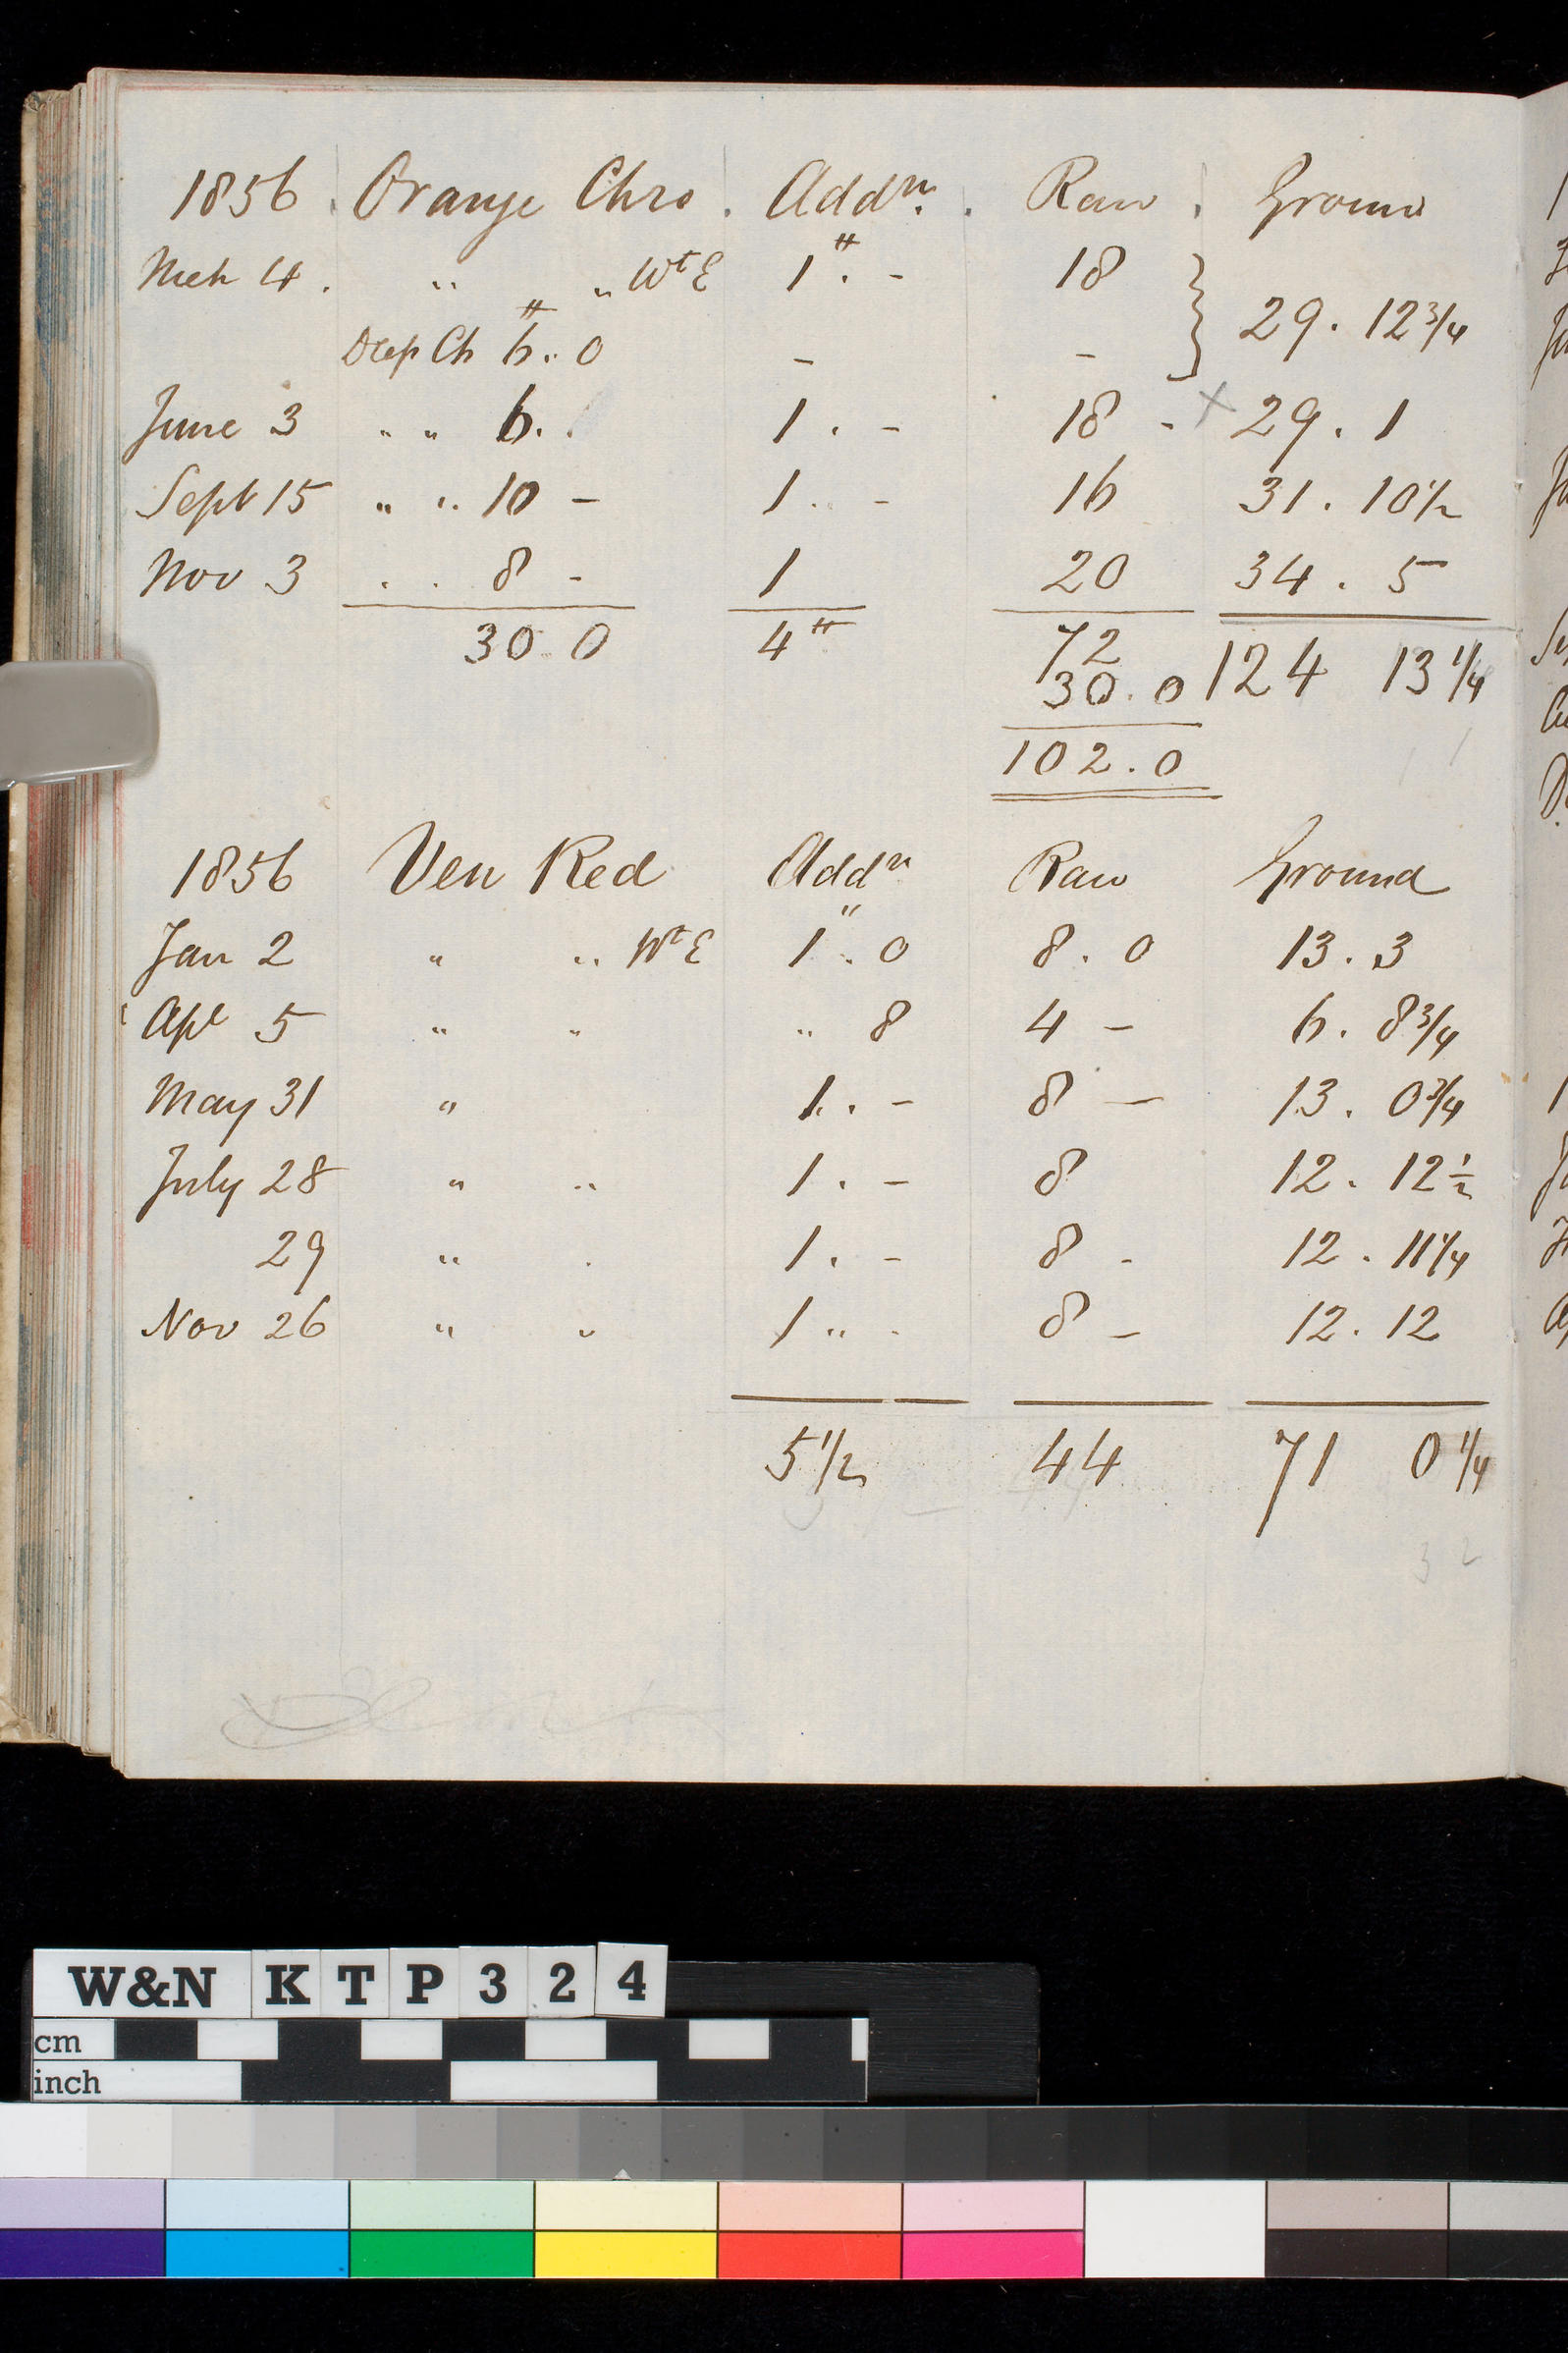 1856 . Orange Chro . Addn. . Raw . Ground
Mch 4 . " " Wt E 1 . - 18
Deep Ch 6 .. 0 - - } 29 . 12 3/4
June 3 " " 6 . 1 . - 18 - x 29 . 1
Sept 15 " " 10 - 1 . - 16 31 . 10 1/2
Nov 3 . . 8 - 1 20 34 . 5
30 . 0 4 72
30 . 0 124 13 1/4
102 . 0
1856 Ven Red Addn Raw Ground
Jan 2 " " Wt E 1 . 0 8 . 0 13 . 3
Apl 5 " " " 8 4 - 6 . 8 3/4
May 31 " 1 . - 8 - 13 . 0 3/4
July 28 " " 1 . - 8 12 . 12 1/2
29 " . 1 . - 8 - 12 . 11 1/4
Nov 26 " " 1 .. - 8 - 12 . 12
5 1/2 44 71 0 1/4
3 2
W&N KTP324
cm
inch